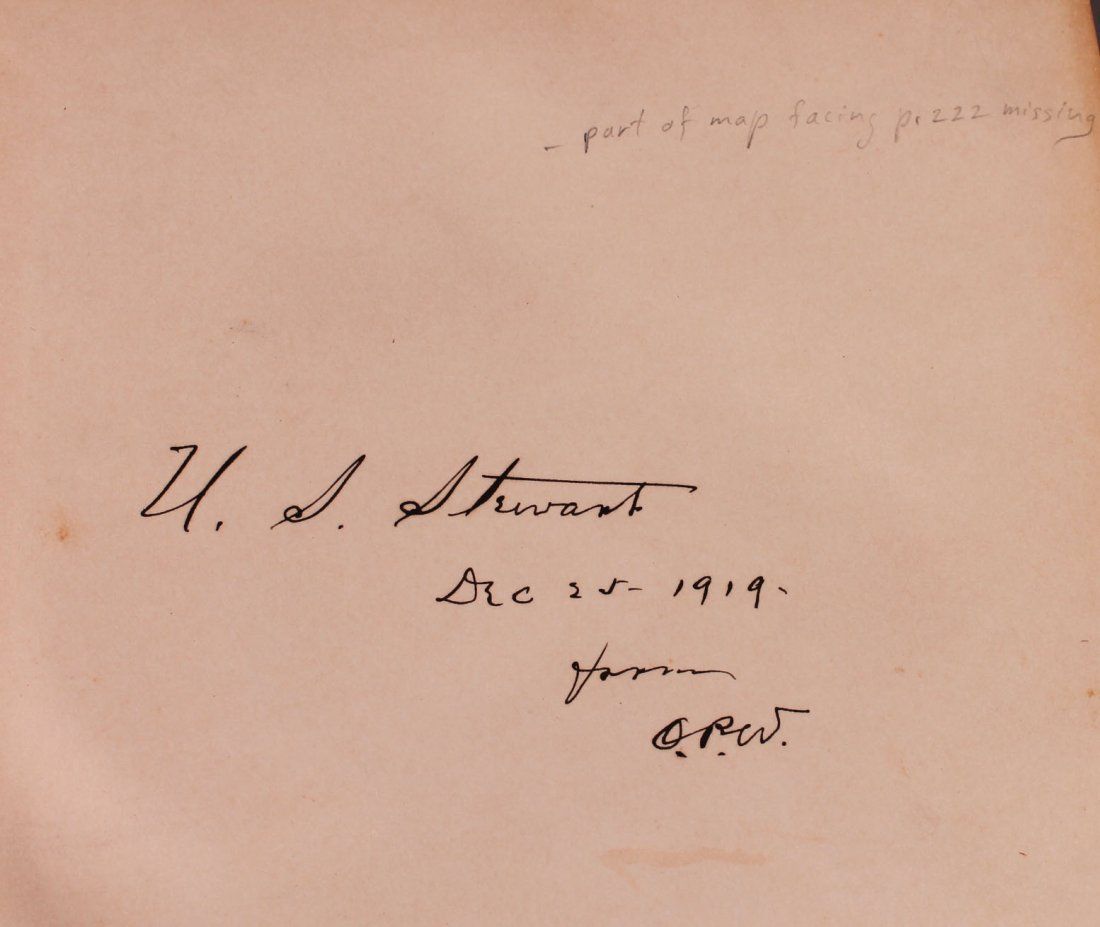 - part of map facing p. 222 missing
U. S. Stewart
Dec 25- 1919-
from
O.P.W.